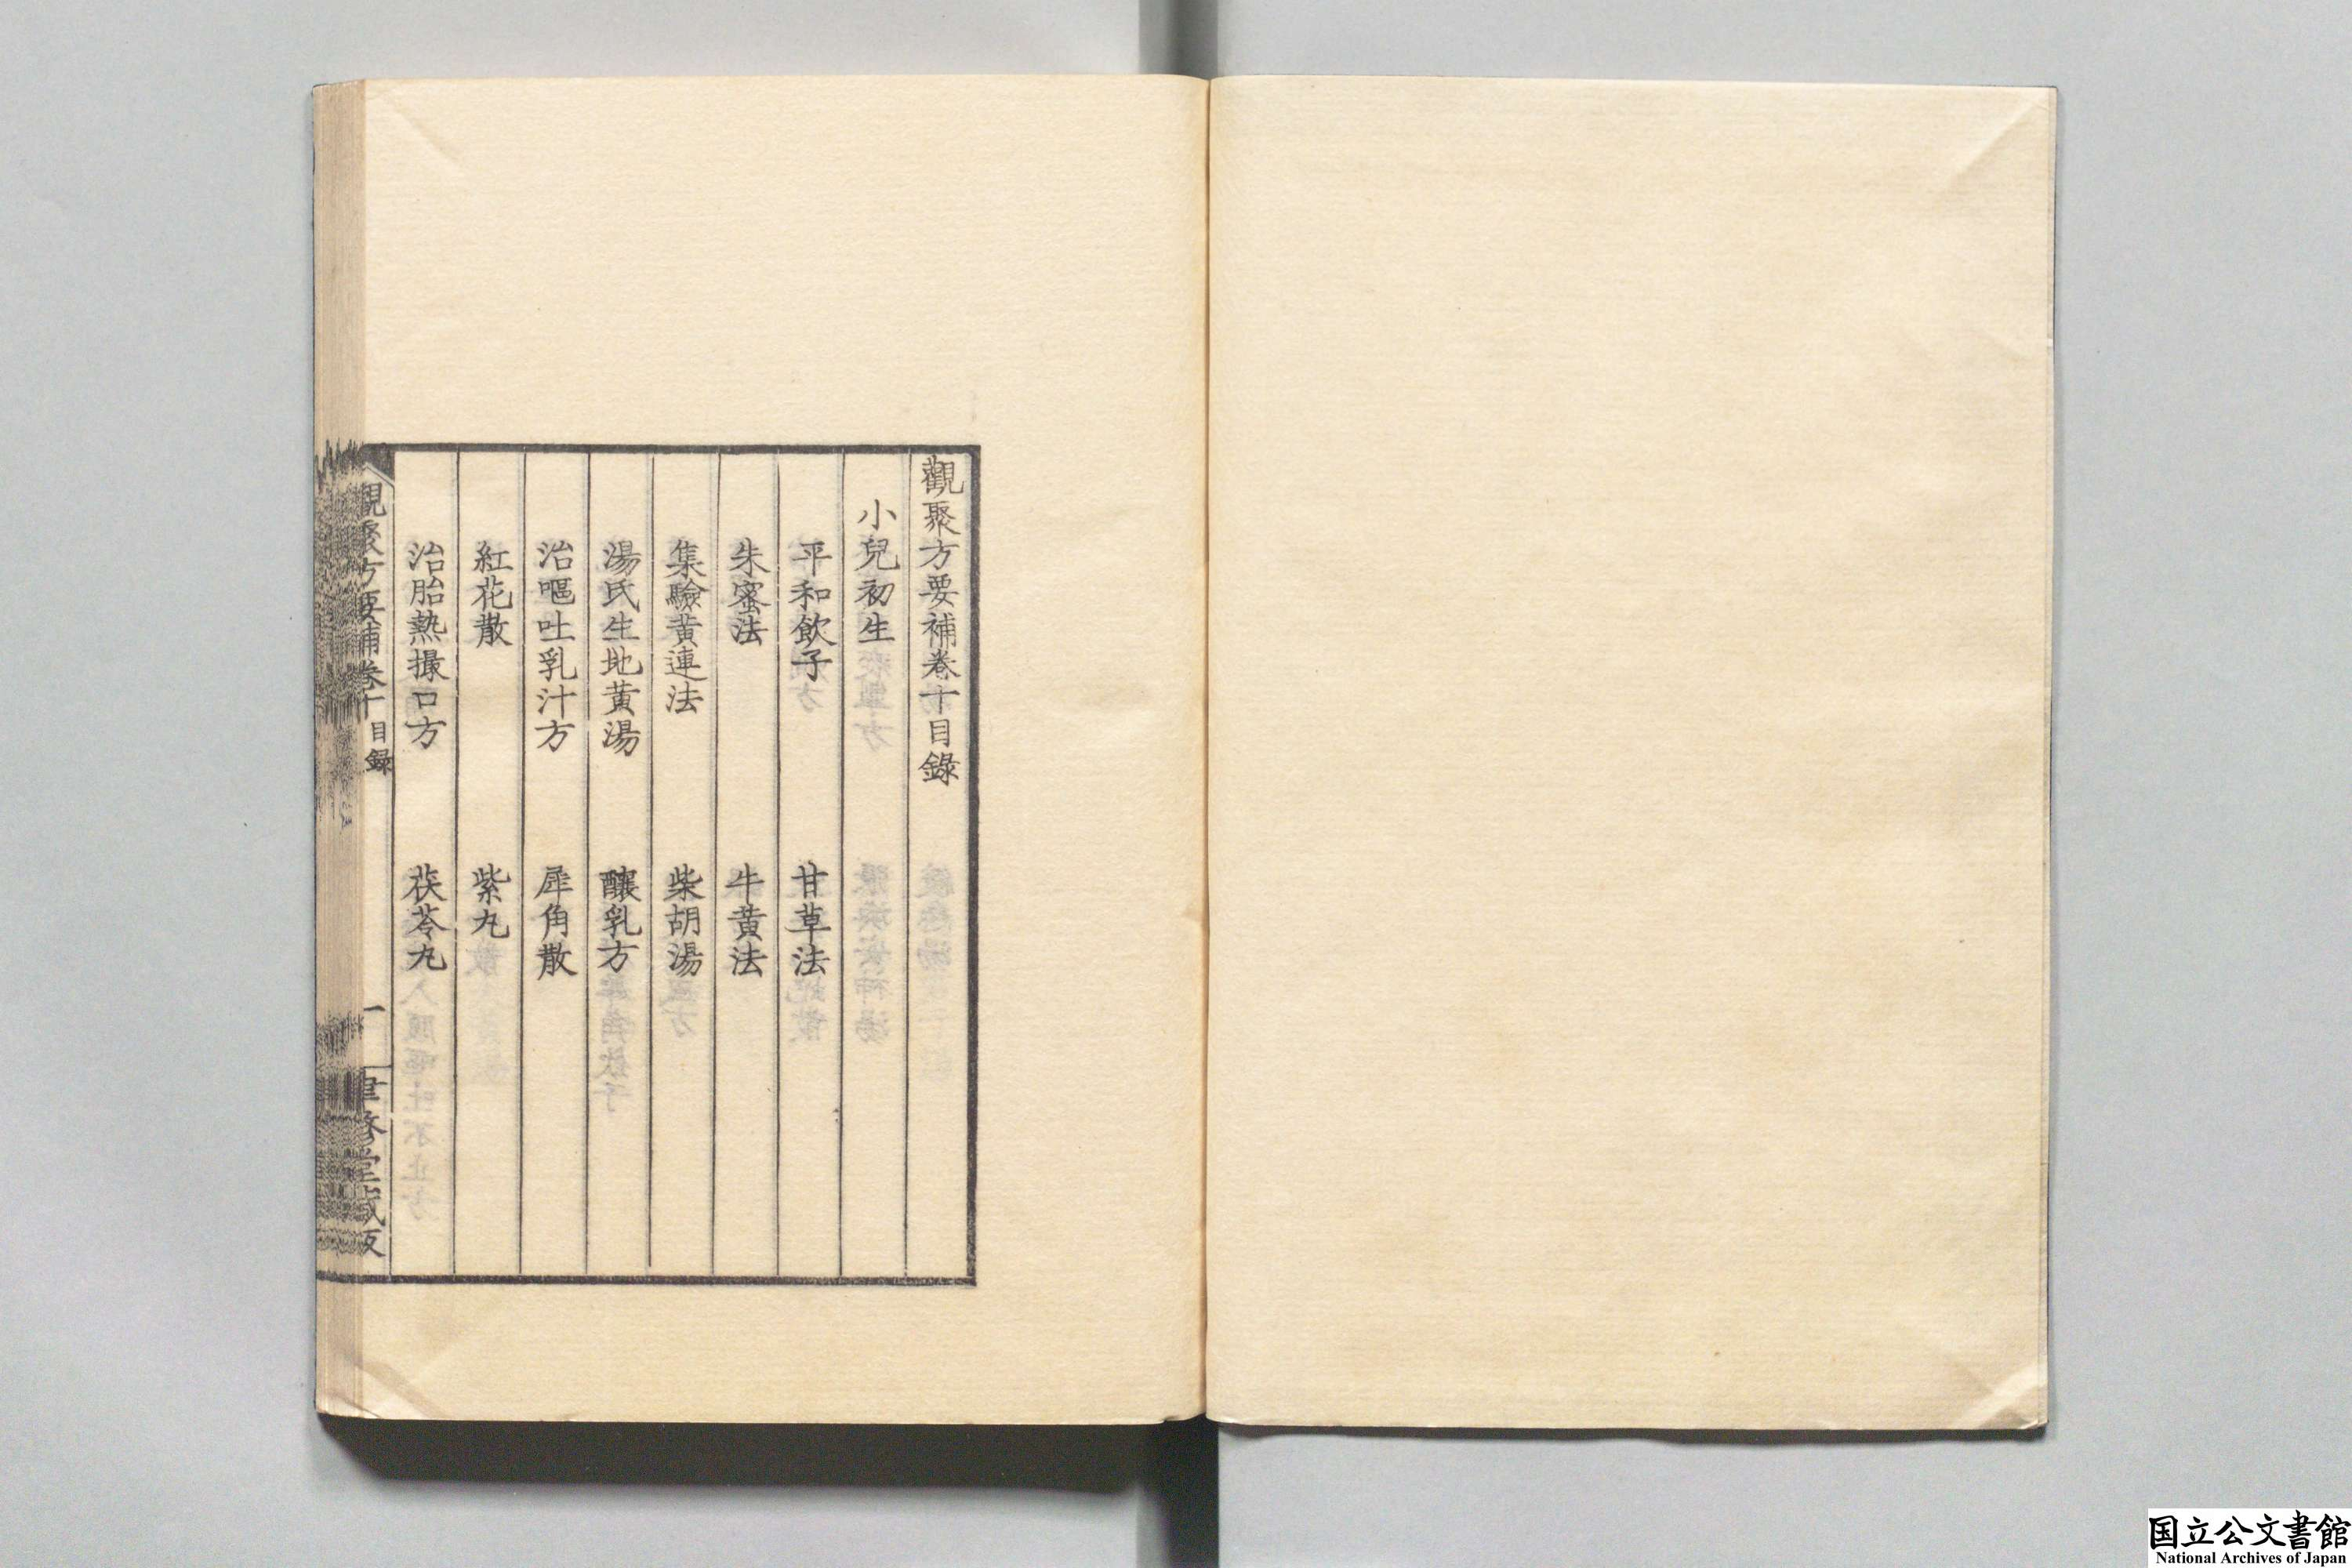 觀聚方要補卷十目錄
小兒初生
平和飲子　甘草法
朱蜜法　牛黃法
集驗黃連法　柴胡湯
湯氏生地黃湯　釀乳方
治嘔吐乳汁方　犀角散
紅花散　紫丸
治胎熱撮口方　茯苓丸
觀聚方要補卷十 目錄 一
聿脩堂藏版
国立公文書館
National Archives of Japan